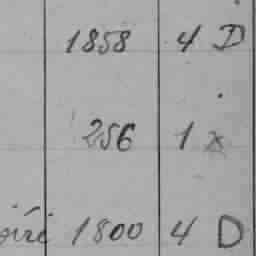 1858 4 D
256 1 x
1800 4 D